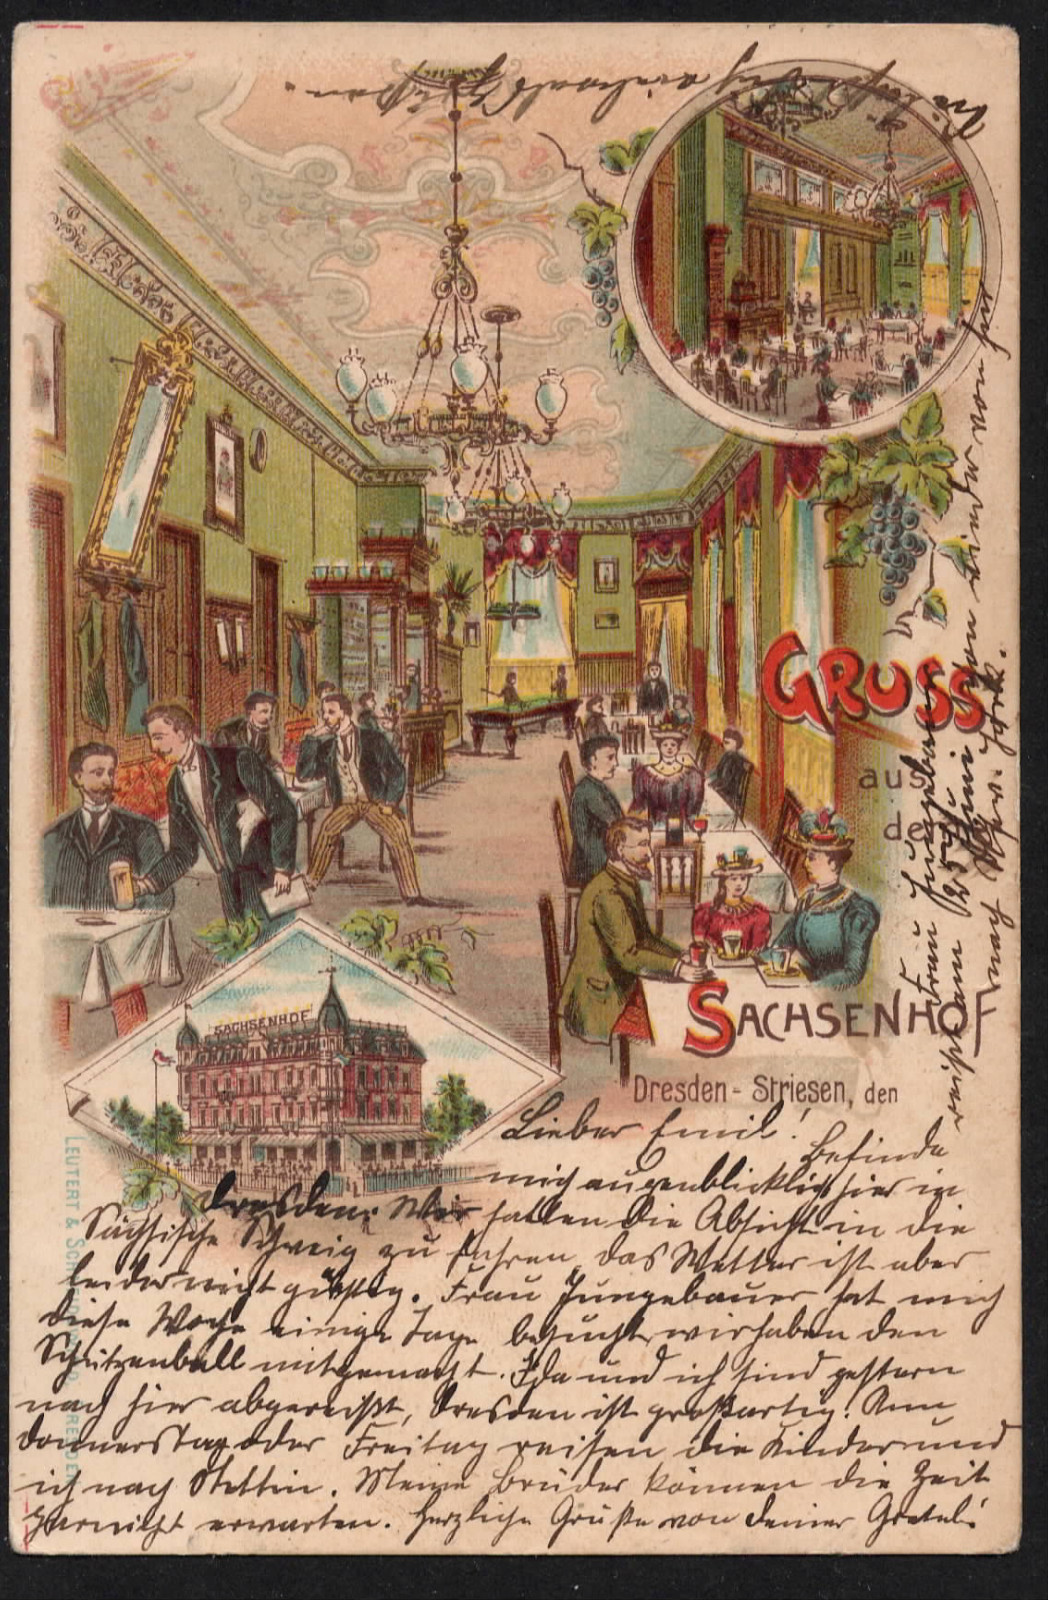 GRUSS
aus
dem
SACHSENHOF
Dresden-Striesen, den
SACHSENHOF
Lieber Emil! Befinde
mich augenblicklich hier in
Dresden. Wir hatten die Absicht in die
Sächsische Schweiz zu fahren, das Wetter ist aber
leider nicht günstig. Frau Jungebauer hat mich
diese Woche einige Tage besucht, wir haben den
Schützenball mitgemacht. Ida und ich sind gestern
nach hier abgereist, Dresden ist großartig. Am
Donnerstag oder Freitag reisen die Kinder und
ich nach Stettin. Meine Brüder können die Zeit
garnicht erwarten. Herzliche Grüße von Deiner Gretel!
Frau Jungebauer
reist am 25 Juni von hier
nach New-York.
LEUTERT & SCHNEIDEWIND, DRESDEN